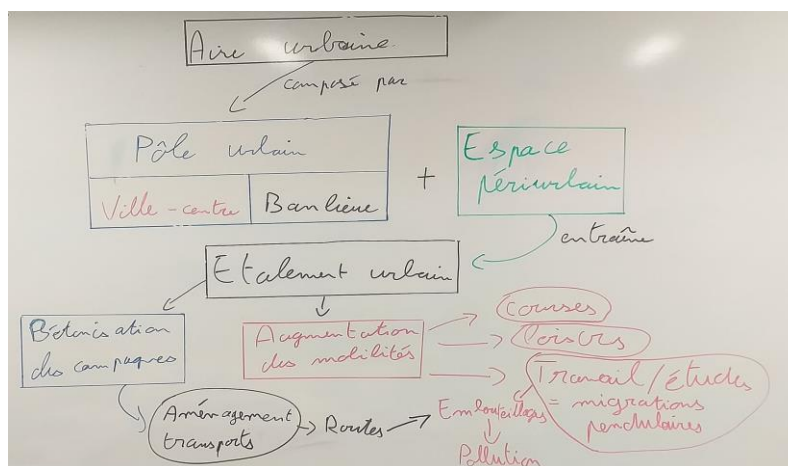 Aire urbaine.
composé par
Pôle urbain
Ville-centre
Banlieue
+
Espace
périurbain
entraîne
Etalement urbain
Bétonisation
des campagnes
Augmentation
des mobilités
courses
loisirs
Travail/études
= migrations
pendulaires
Aménagement
transports
Routes
Embouteillages
Pollution